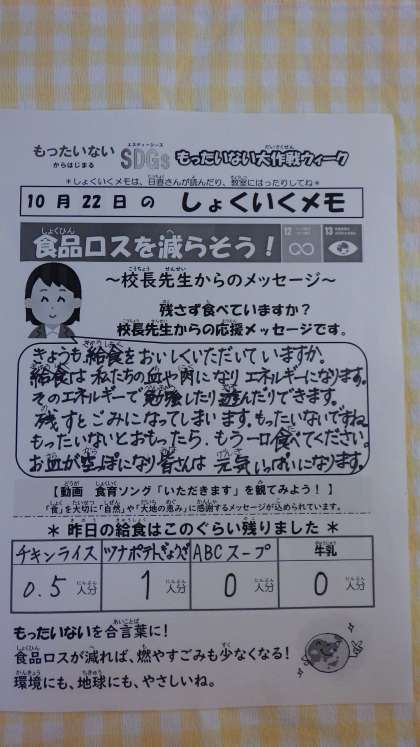 もったいない
からはじまる
エスディージーズ
SDGs
もったいない大作戦ウィーク
*しょくいくメモは、日直さんが読んだり、教室にはったりしてね*
10月22日の しょくいくメモ
食品ロスを減らそう!
12
13
~校長先生からのメッセージ~
残さず食べていますか?
校長先生からの応援メッセージです。
きょうも給食をおいしくいただいていますか。
給食は私たちの血や肉になりエネルギーになります。
そのエネルギーで勉強したり遊んだりできます。
残すとごみになってしまいます。もったいないですね
もったいないとおもったら、もう一口食べてください。
お皿が空っぽになり皆さんは元気いっぱいになります。
【動画 食育ソング「いただきます」を観てみよう!】
「食」を大切に「自然」や「大地の恵み」に感謝するメッセージが込められています。
*昨日の給食はこのぐらい残りました*
チキンライス ツナポテトぎょうざ ABCスープ 牛乳
0.5人分 1人分 0人分 0人分
もったいないを合言葉に!
食品ロスが減れば、燃やすごみも少なくなる!
環境にも、地球にも、やさしいね。